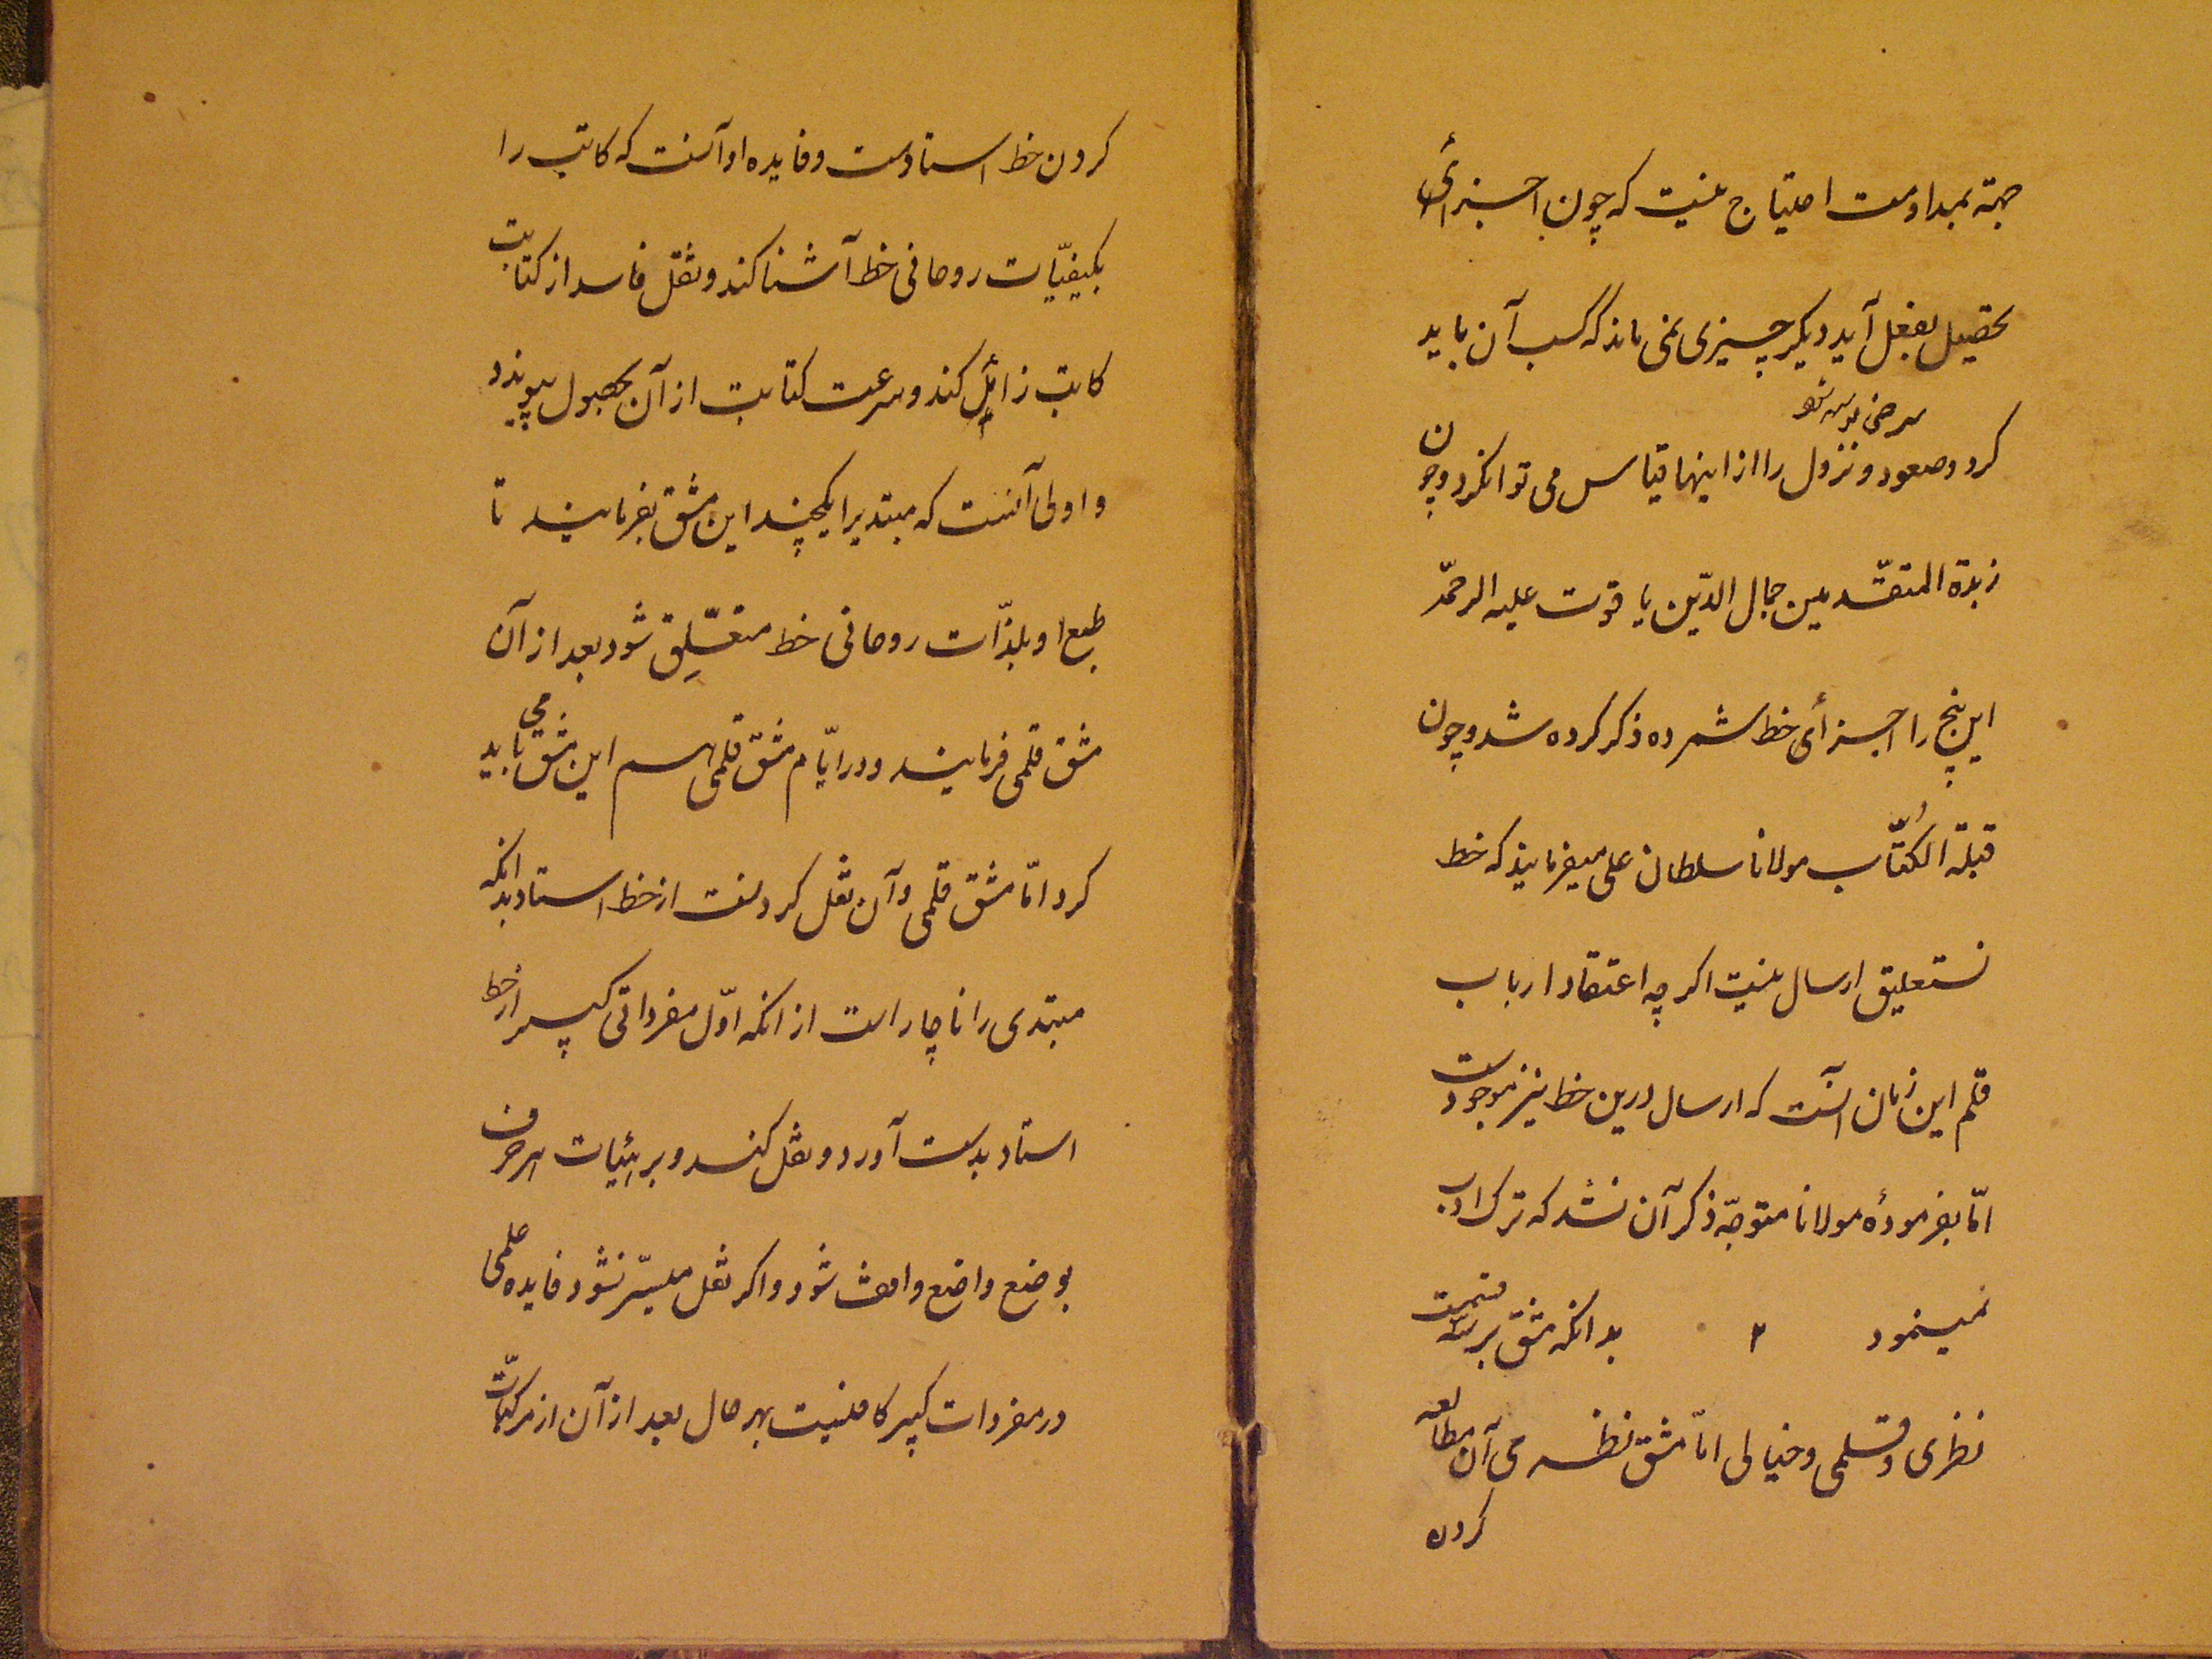 جهة بمداومت احتیاج نیست که چون اجزائی
تحصیل بفعل آید دیگر چیزی نمی ماند که کسب آن باید
کرد و صعود و نزول را از اینها قیاس می توانکرد و چون
زبدة المتقدّمین جمال الدّین یاقوت علیه الرحمّة
این پنج را اجزأی خط شمرده ذکر کرده شد و چون
قبلة الکُتّاب مولانا سلطان علی میفرمایند که خط
نستعلیق ارسال نیست اکرچه اعتقاد ارباب
قلم این زمان آنست که ارسال درین خط نیز موجودست
امّا بفرمودهٔ مولانا متوجّه ذکر آن نشد که ترک ادب
مینمود بدانکه مشق بر سه قسمت
نظری و قلمی و خیالی امّا مشق نظری آن مطالعه
کردن
کردن خط استادست و فایده او آنست که کاتب را
بکیفیّات روحانی خط آشنا کند و نقل فاسد از کتابت
کاتب زائل کند و سرعت کتابت از آن بحصول پیوندد
و اولی آنست که مبتدیرا یکچند این مشق بفرمایند تا
طبع او بلذّات روحانی خط متعّلِق شود بعد از آن
مشق قلمی فرمایند و در ایّام مشق قلمی هم این مشق می باید
کرد امّا مشق قلمی و آن نقل کردنست از خط استاد بدانکه
مبتدی را ناچار است از انکه اوّل مفرداتی کیرد از خط
استاد بدست آورد و نقل کند و بر هیٔات هر حرف
بوضع واضع واقف شود و اکر نقل میسّر نشود فایده علمی
در مفردات کیر کافیست بهر حال بعد از آن از مرکبّات